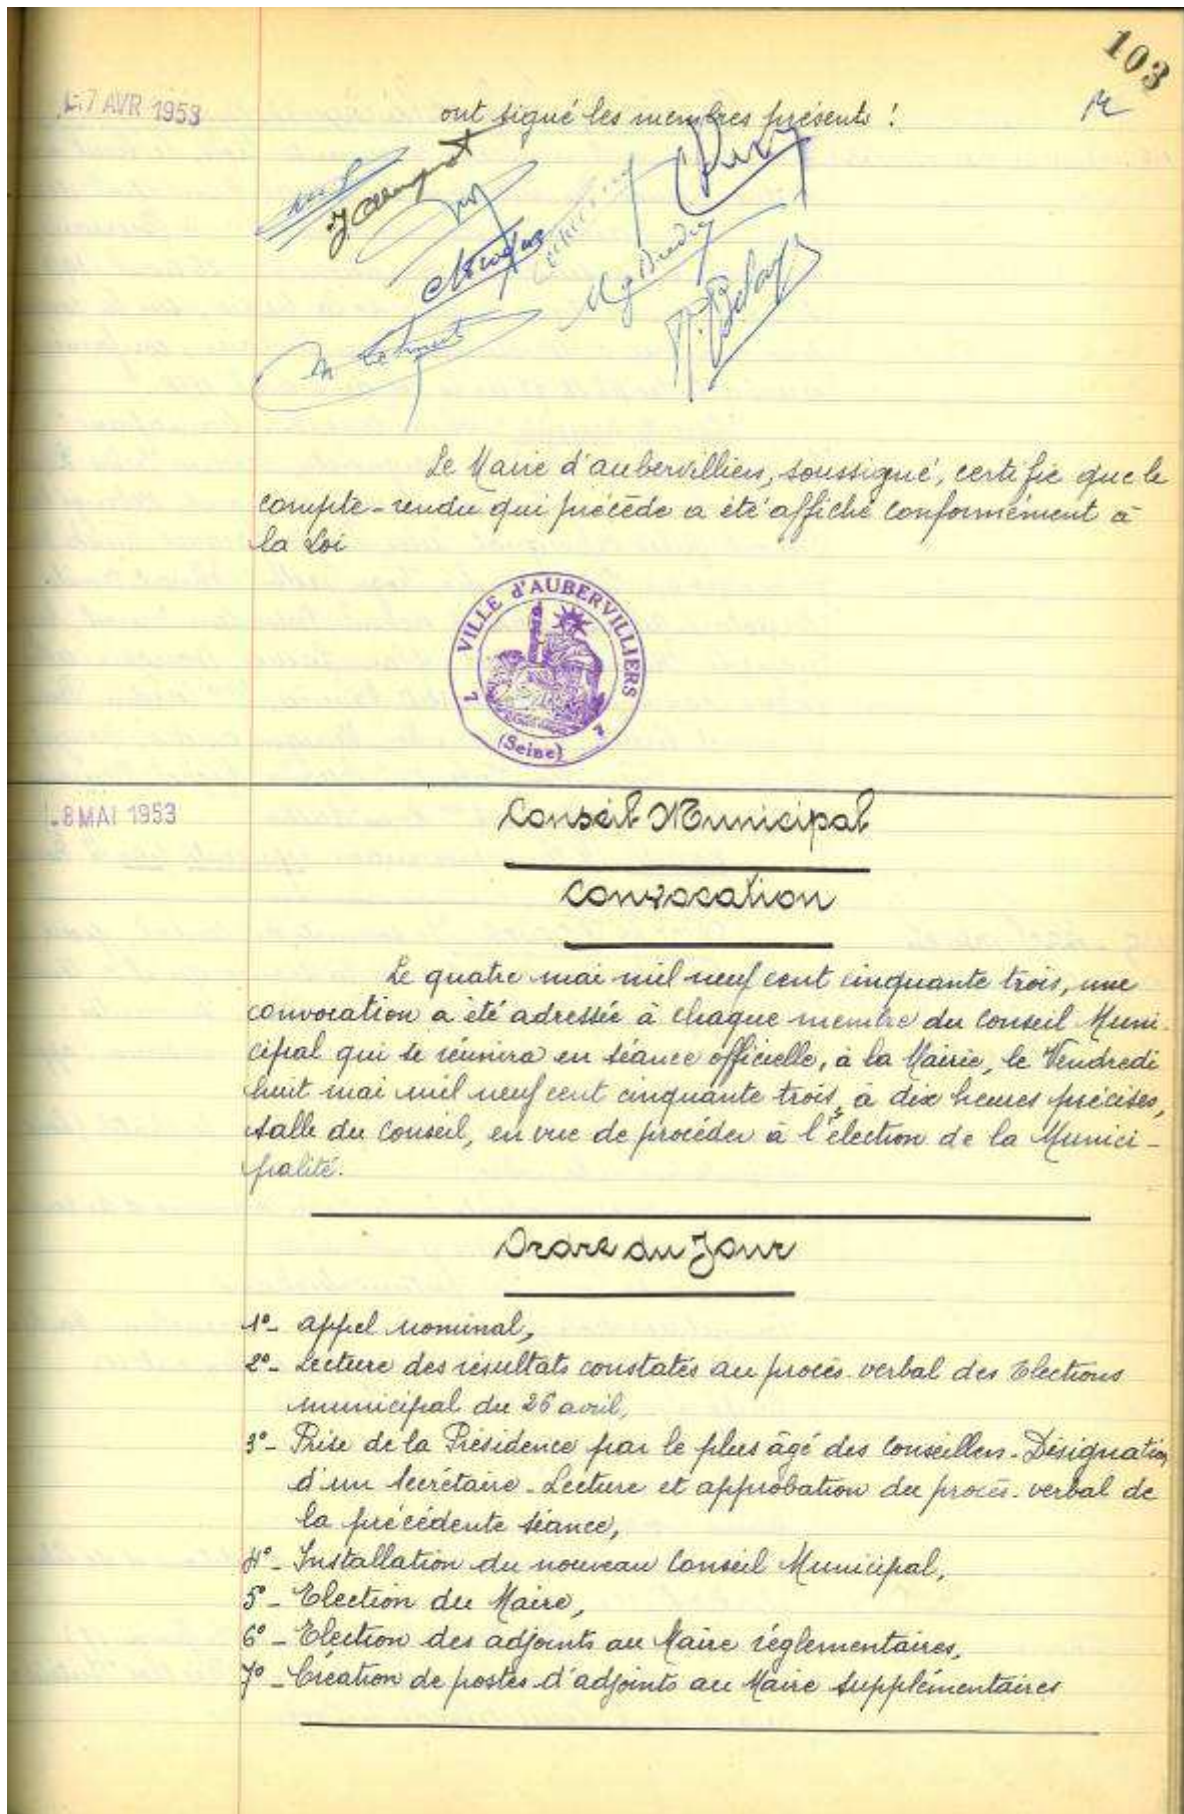 103
7 AVR 1953
ont signé les membres présents :
Le Maire d'aubervilliers, soussigné, certifie que le
compte-rendu qui précède a été affiché conformément à
la Loi
VILLE d'AUBERVILLIERS
(Seine)
8 MAI 1953
Conseil Municipal
Convocation
Le quatre mai mil neuf cent cinquante trois, une
convocation a été adressée à chaque membre du Conseil Muni-
cipal qui se réunira en séance officielle, à la Mairie, le Vendredi
huit mai mil neuf cent cinquante trois, à dix heures précises,
salle du Conseil, en vue de procéder à l'élection de la Munici-
palité.
Ordre du Jour
1°- appel nominal,
2°- Lecture des résultats constatés au procès-verbal des Elections
municipal du 26 avril,
3°- Prise de la Présidence par le plus âgé des Conseillers - Désignation
d'un Secrétaire - Lecture et approbation du procès-verbal de
la précédente séance,
4°- Installation du nouveau Conseil Municipal,
5°- Election du Maire,
6°- Election des adjoints au Maire réglementaires,
7°- Création de postes d'adjoints au Maire supplémentaires